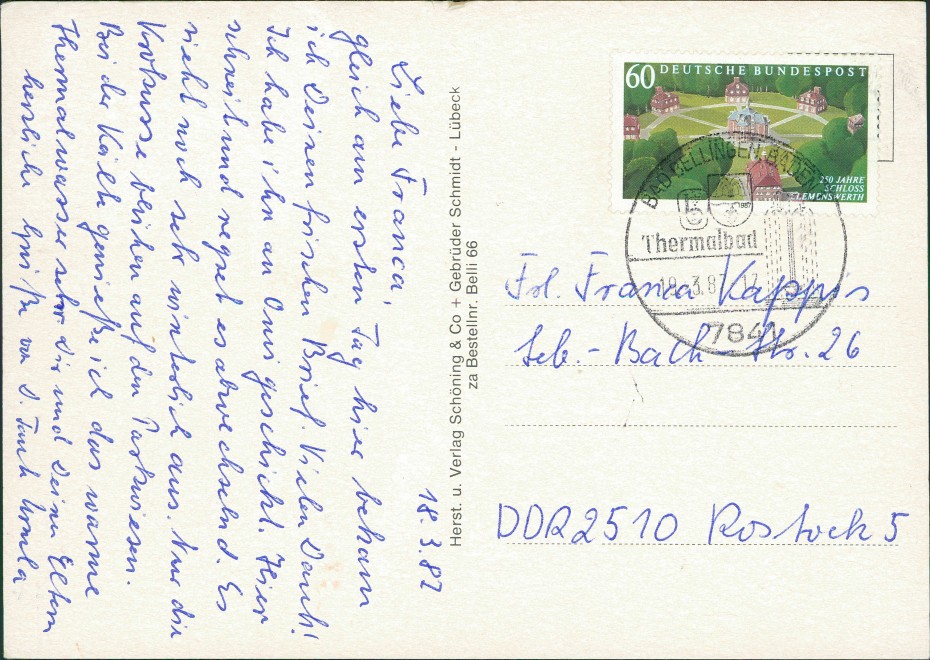 18.3.87
Liebe Franca,
gleich am ersten Tag hier bekam
ich Deinen frischen Brief. Vielen Dank!
Ich habe ihn an Omi geschickt. Hier
schneit und regnet es abwechselnd. Es
sieht noch sehr winterlich aus. Nur die
Krokusse blühen auf den Parkwiesen.
Bei der Kälte genieße ich das warme
Thermalwasser sehr. Dir und Deinen Eltern
herzliche Grüße von D. Tante
Herst. u. Verlag Schöning & Co + Gebrüder Schmidt - Lübeck
za Bestellnr. Belli 66
60 DEUTSCHE BUNDESPOST
250 JAHRE
SCHLOSS
CLEMENSWERTH
BAD BELLINGEN, BADEN
Thermalbad
18.-3.87
7841
Frl. Franca Kappis
Seb.- Bach - Str. 26
DDR 2510 Rostock 5